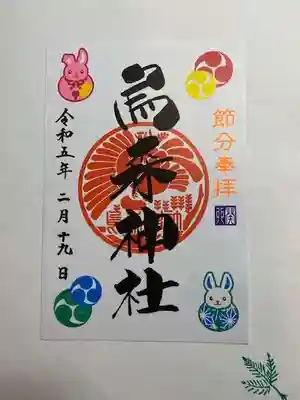 節分奉拝
烏森神社
令和五年 二月十九日